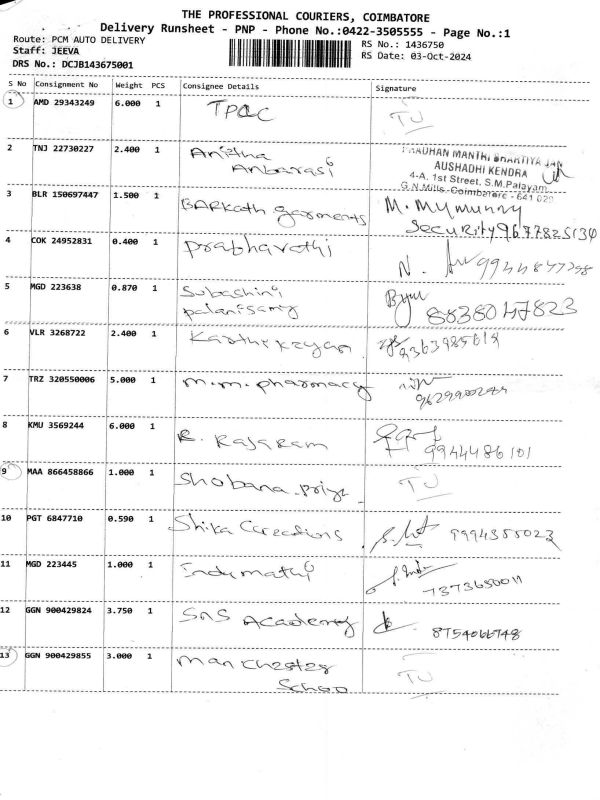 THE PROFESSIONAL COURIERS, COIMBATORE
Delivery Runsheet - PNP - Phone No.:0422-3505555 - Page No.:1
Route: PCM AUTO DELIVERY
RS No.: 1436750
Staff: JEEVA
RS Date: 03-Oct-2024
DRS No.: DCJB143675001
S No Consignment No Weight PCS Consignee Details Signature
1 AMD 29343249 6.000 1 TPQC TJ
2 TNJ 22730227 2.400 1 Anitha Anbarasi
PRADHAN MANTRI BHARTIYA JAN
AUSHADHI KENDRA
4-A, 1st Street, S.M.Palayam
G.N.Mills, Coimbatore - 641 029
3 BLR 150697447 1.500 1 BARKath garments M. Mymunny
Security 9677825134
4 COK 24952831 0.400 1 prabhavathi N. 9944847248
5 MGD 223638 0.870 1 Subashini
palanisamy 8838047823
6 VLR 3268722 2.400 1 Karthikeyan 9363985618
7 TRZ 320550006 5.000 1 m.m. pharmacy
8 KMU 3569244 6.000 1 R. Rajaram 9944486101
9 MAA 866458866 1.000 1 Shobana priya TJ
10 PGT 6847710 0.590 1 Shika Creations 9994355023
11 MGD 223445 1.000 1 Indumathi 7373650011
12 GGN 900429824 3.750 1 SNS Academy 8754066748
13 GGN 900429855 3.000 1 Manchester
School TJ